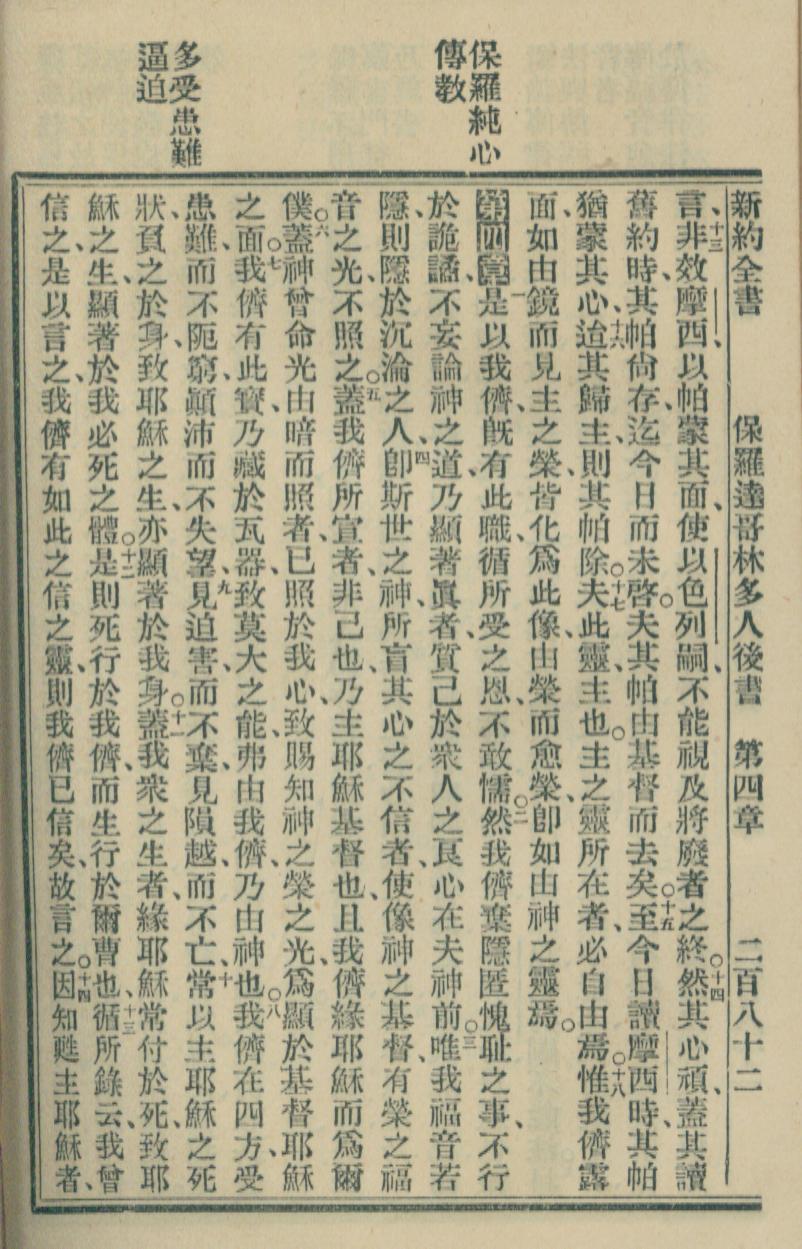 保羅純心
傳教
多受患難
逼迫
新約全書 保羅達哥林多人後書 第四章 二百八十二
言、十三非效摩西、以帕蒙其面、使以色列嗣、不能視及將廢者之終。十四然其心頑、蓋其讀
舊約時、其帕尙存、迄今日而未啓。夫其帕由基督而去矣。十五至今日讀摩西時、其帕
猶蒙其心、十六迨其歸主、則其帕除。十七夫此靈、主也。主之靈所在者、必自由焉。十八惟我儕露
面、如由鏡而見主之榮、皆化爲此像、由榮而愈榮、卽如由神之靈焉。
第四章 一是以我儕旣有此職、循所受之恩、不敢懦。二然我儕棄隱匿愧耻之事、不行
於詭譎、不妄論神之道、乃顯著眞者、質己於衆人之良心在夫神前。三唯我福音若
隱、則隱於沉淪之人、四卽斯世之神、所盲其心之不信者、使像神之基督、有榮之福
音之光、不照之。五蓋我儕所宣者、非己也、乃主耶穌基督也、且我儕緣耶穌而爲爾
僕。六蓋神曾命光由暗而照者、已照於我心、致賜知神之榮之光、爲顯於基督耶穌
之面。七我儕有此寶、乃藏於瓦器、致莫大之能、弗由我儕、乃由神也。八我儕在四方受
患難、而不阨窮、顚沛而不失望、九見迫害、而不棄、見隕越、而不亡、十常以主耶穌之死
狀、負之於身、致耶穌之生、亦顯著於我身。十一蓋我衆之生者、緣耶穌常付於死、致耶
穌之生、顯著於我必死之體。十二是則死行於我儕、而生行於爾曹也、十三循所錄云、我曾
信之、是以言之、我儕有如此之信之靈、則我儕已信矣、故言之。十四因知甦主耶穌者、